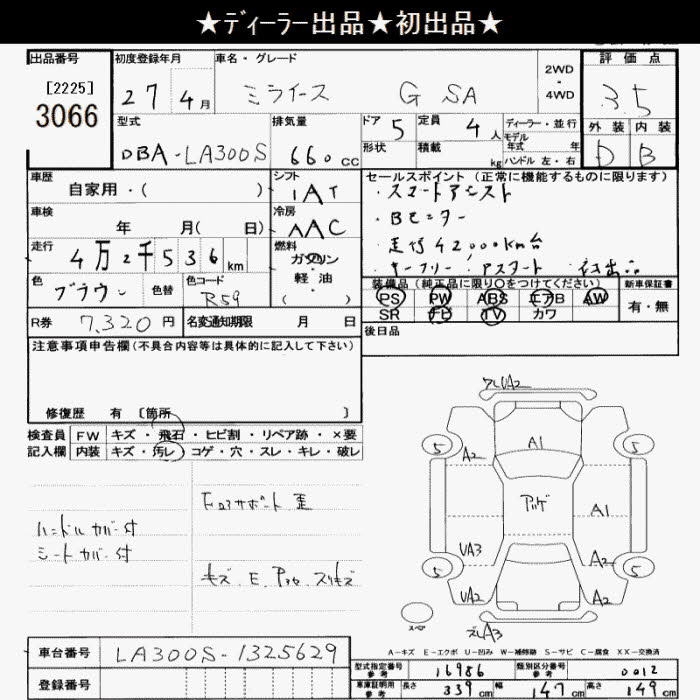 ★ディーラー出品★初出品★
出品番号 初度登録年月 車名・グレード 2WD・4WD 評価点
[2225]
3066
27年4月 ミライース G SA 3.5
型式 排気量 ドア 定員 ディーラー・並行
DBA-LA300S 660cc 5 4人 モデル年式 年
形状 積載 kg ハンドル 左・右
外装 内装
D B
車歴 シフト セールスポイント (正常に機能するものに限ります)
自家用・( ) IAT ・スマートアシスト
車検 冷房 ・Bモニター
年 月( 日) AAC ・走行42000km台
走行 燃料 ・キーフリー ・Iアスタート ・初出品
4万2千536km ガソリン
軽油
( )
色 色替 色コード
ブラウン R59
装備品 (純正品に限り○をつけてください) 新車保証書
PS PW ABS エアB AW 有・無
SR FL TV カワ
R券 7,320円 名変通知期限 月 日 後日品
注意事項申告欄(不具合内容等は具体的に記入して下さい)
修復歴 有 〔箇所 〕
検査員 FW キズ・飛石・ヒビ割・リペア跡・×要
記入欄 内装 キズ・汚レ・コゲ・穴・スレ・キレ・破レ
Fコアサポート歪
ハンドルカバー付
シートカバー付
キズ. E. アリ. スリキズ
フレUA2
5 A2 A1 5
アリゲ A1
UA3 A2
5 5
UA2 A2
スペア
UA3
A−キズ E−エクボ U−凹み W−補修跡 S−サビ C−腐食 XX−交換済
車台番号 LA300S-1325629
登録番号
型式指定番号 参考 16986 類別区分番号 参考 0012
車庫証明用 参考 長さ 339cm 幅 147cm 高さ 149cm